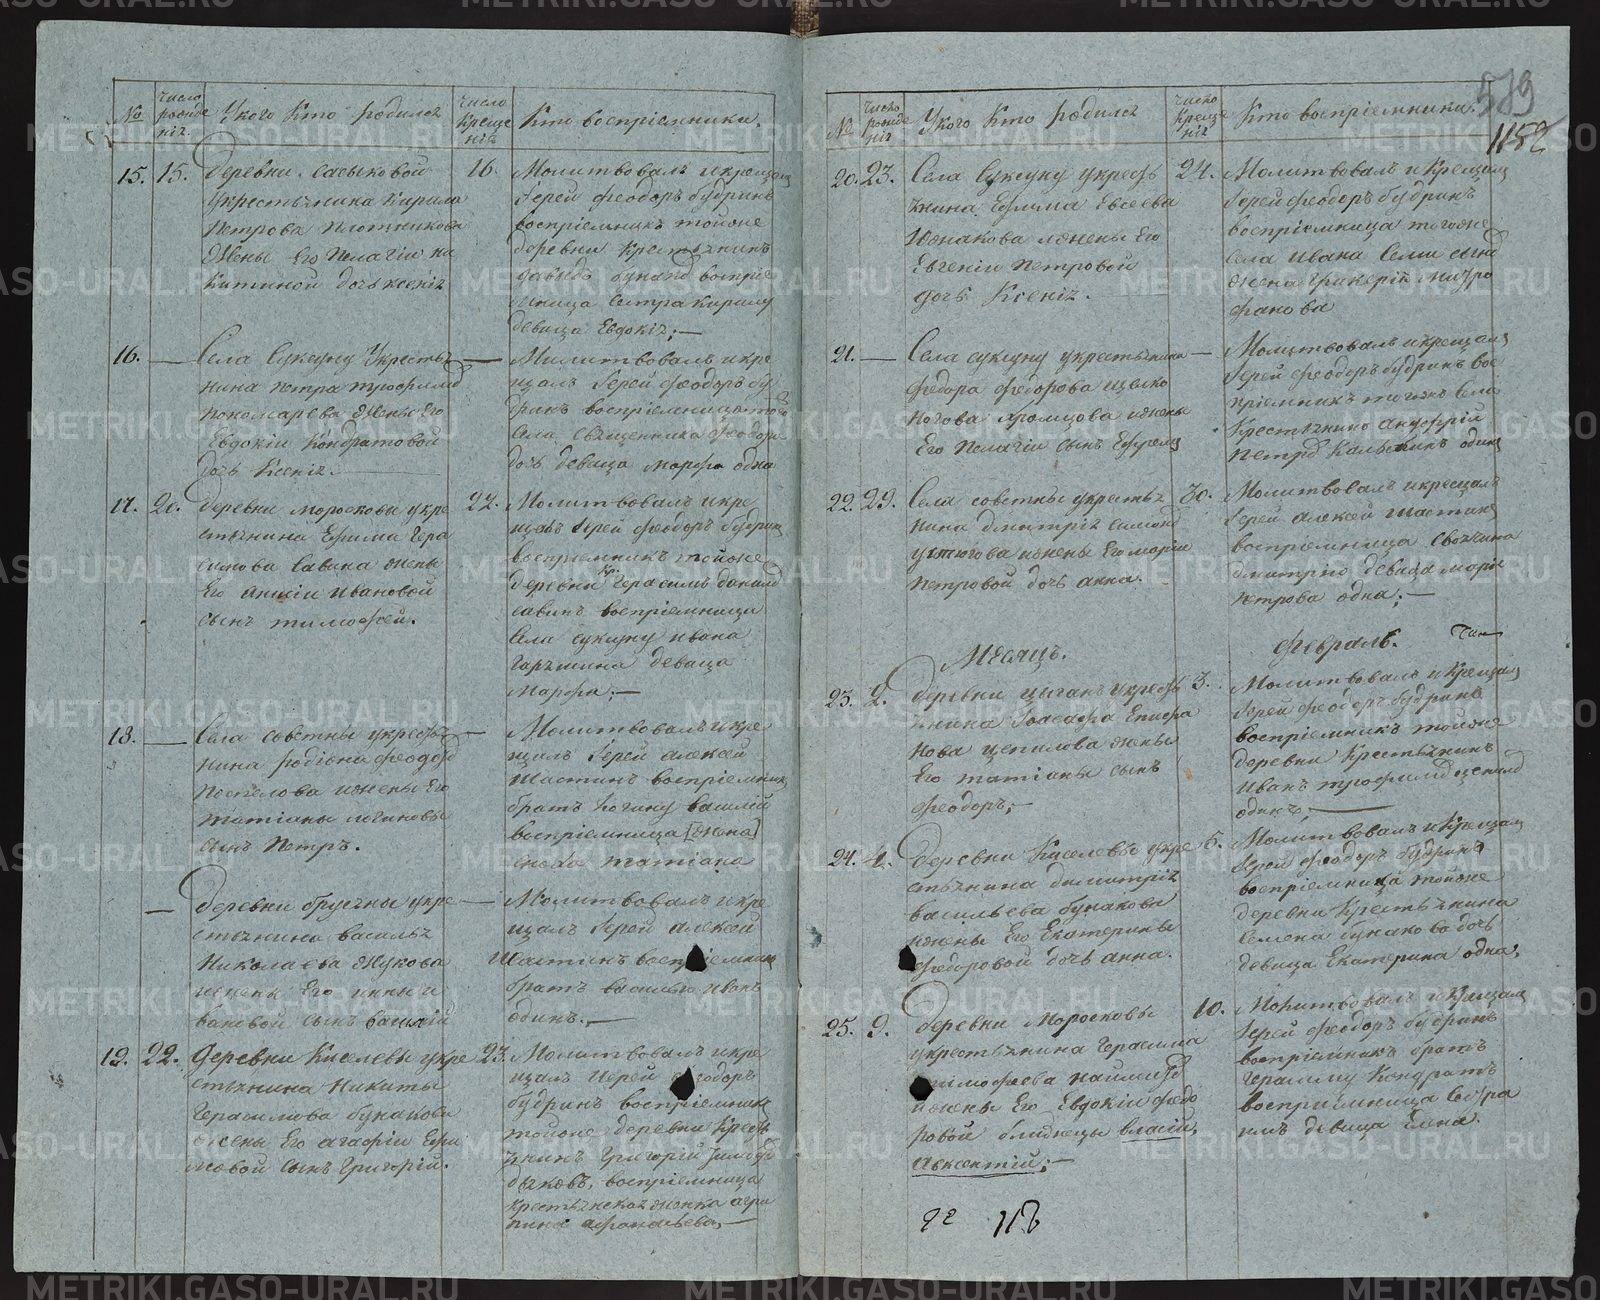 №
число рожде нія
У кого Кто родился
число Креще нія
Кто воспріемники.
15. 15.
деревни Сасыковой
укрестьянина Кирила
Петрова Плотникова
жены Его Пелагіи Ни
китиной дочь Ксенія
16.
Молитвовалъ и крещалъ
Іерей Феодоръ Будринъ
воспріемникъ тойже
деревни Крестьянинъ
воспріе
мница Сестра Кирилу
девица Евдокія;—
16. —
Села Суксуну Укресть
нина Петра Трофимов
Пономарева жены Его
Евдокіи Кондратовой
дочь Ксенія.
—
Молитвовалъ и кре
щалъ Іерей Феодоръ Бу
дринъ воспріемница того
Села Священника Феодора
дочь девица Марфа одна
17. 20.
деревни Моросковы укре
стьянина Ефима Гера
симова Савина жены
Его Анисіи Ивановой
сынъ Тимофей.
22.
Молитвовалъ и кре
щалъ Іерей Феодоръ Будринъ
воспріемникъ тойже
деревни кр. Герасимъ
Савинъ воспріемница
Села Суксуну Ивана
девица
Марфа;—
18. —
Села Советны укресть
нина Родіона Феодор
Поспелова и жены Его
Татіаны Логиновы
сынъ Петръ.
—
Молитвовалъ и кре
щалъ Іерей Алексей
Шастинъ воспріемникъ
братъ Логину Василій
воспріемница [жена]
Сноха Татіана
—
деревни Брусяны укре
стьянина Василья
Николаева Жукова
и жены Его Инны И
вановой сынъ Василій
—
Молитвовалъ и кре
щалъ Іерей Алексей
Шастинъ воспріемникъ
братъ Василью Иванъ
одинъ.—
19. 22.
деревни Киселевы укре
стьянина Никиты
Герасимова Бунакова
жены Его Агафіи Ефи
мовой сынъ Григорій.
23.
Молитвовалъ и кре
щалъ Іерей Феодоръ
Будринъ воспріемникъ
тойже деревни Кресть
янинъ Григорій
воспріемница
Крестьянская женка Агри
пина Афонасьева,—
№
число рожде нія
У кого Кто родился
число Креще нія
Кто воспріемники.
589
1152
20. 23.
Села Суксуну укресть
янина Ефима Евсеева
Южакова и жены Его
Евгеніи Петровой
дочь Ксенія.
24.
Молитвовалъ и Крещалъ
Іерей Феодоръ Будринъ
воспріемница тогоже
Села Ивана
жена Гликерія Митро
фанова
21. —
Села Суксуну укрестьянина
Федора Федорова Щелко
ногова и жены
Его Пелагіи сынъ Ефремъ
—
Молитвовалъ и крещалъ
Іерей Феодоръ Будринъ вос
пріемникъ тогожъ Села
Крестьянинъ
Петров одинъ
22. 29.
Села Советны укресть
нина Дмитрія Симонов
Устюгова и жены Его Маріи
Петровой дочь Анна.
30.
Молитвовалъ и крещалъ
Іерей Алексей Шастинъ
воспріемница Своячина
Дмитрію девица Марія
Петрова одна;—
Месяцъ.
Февраль.
23. 2.
деревни Циганъ укресть
янина Іоасафа Епифа
нова Цепилова жены
Его Татіаны сынъ
Феодоръ;—
3.
Молитвовалъ и Крещалъ
Іерей Феодоръ Будринъ
воспріемникъ тойже
деревни Крестьянинъ
Иванъ Трофимов Цепилов
одинъ;—
24. 4.
деревни Киселевы укре
стьянина Димитрія
Васильева Бунакова
жены Его Екатерины
Федоровой дочь Анна.
5.
Молитвовалъ и Крещалъ
Іерей Феодоръ Будринъ
воспріемница тойже
деревни Крестьянина
Семена Бунакова дочь
девица Екатерина одна;
25. 9.
деревни Моросковы
укрестьянина Герасима
Тимофеева
и жены Его Евдокіи Федо
ровой близнецы Власій,
Авксентій;—
10.
Молитвовалъ и Крещалъ
Іерей Феодоръ Будринъ
воспріемникъ братъ
Герасиму Кондратъ
воспріемница Сестра
имъ девица Елена.